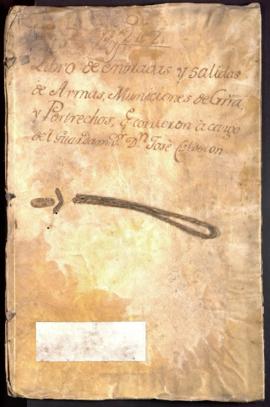 Libro de entradas y salidas
de Armas, Municiones de Grã,
y Pertrechos, q corrieron a cargo
del Guardam.r D.n José Calderon